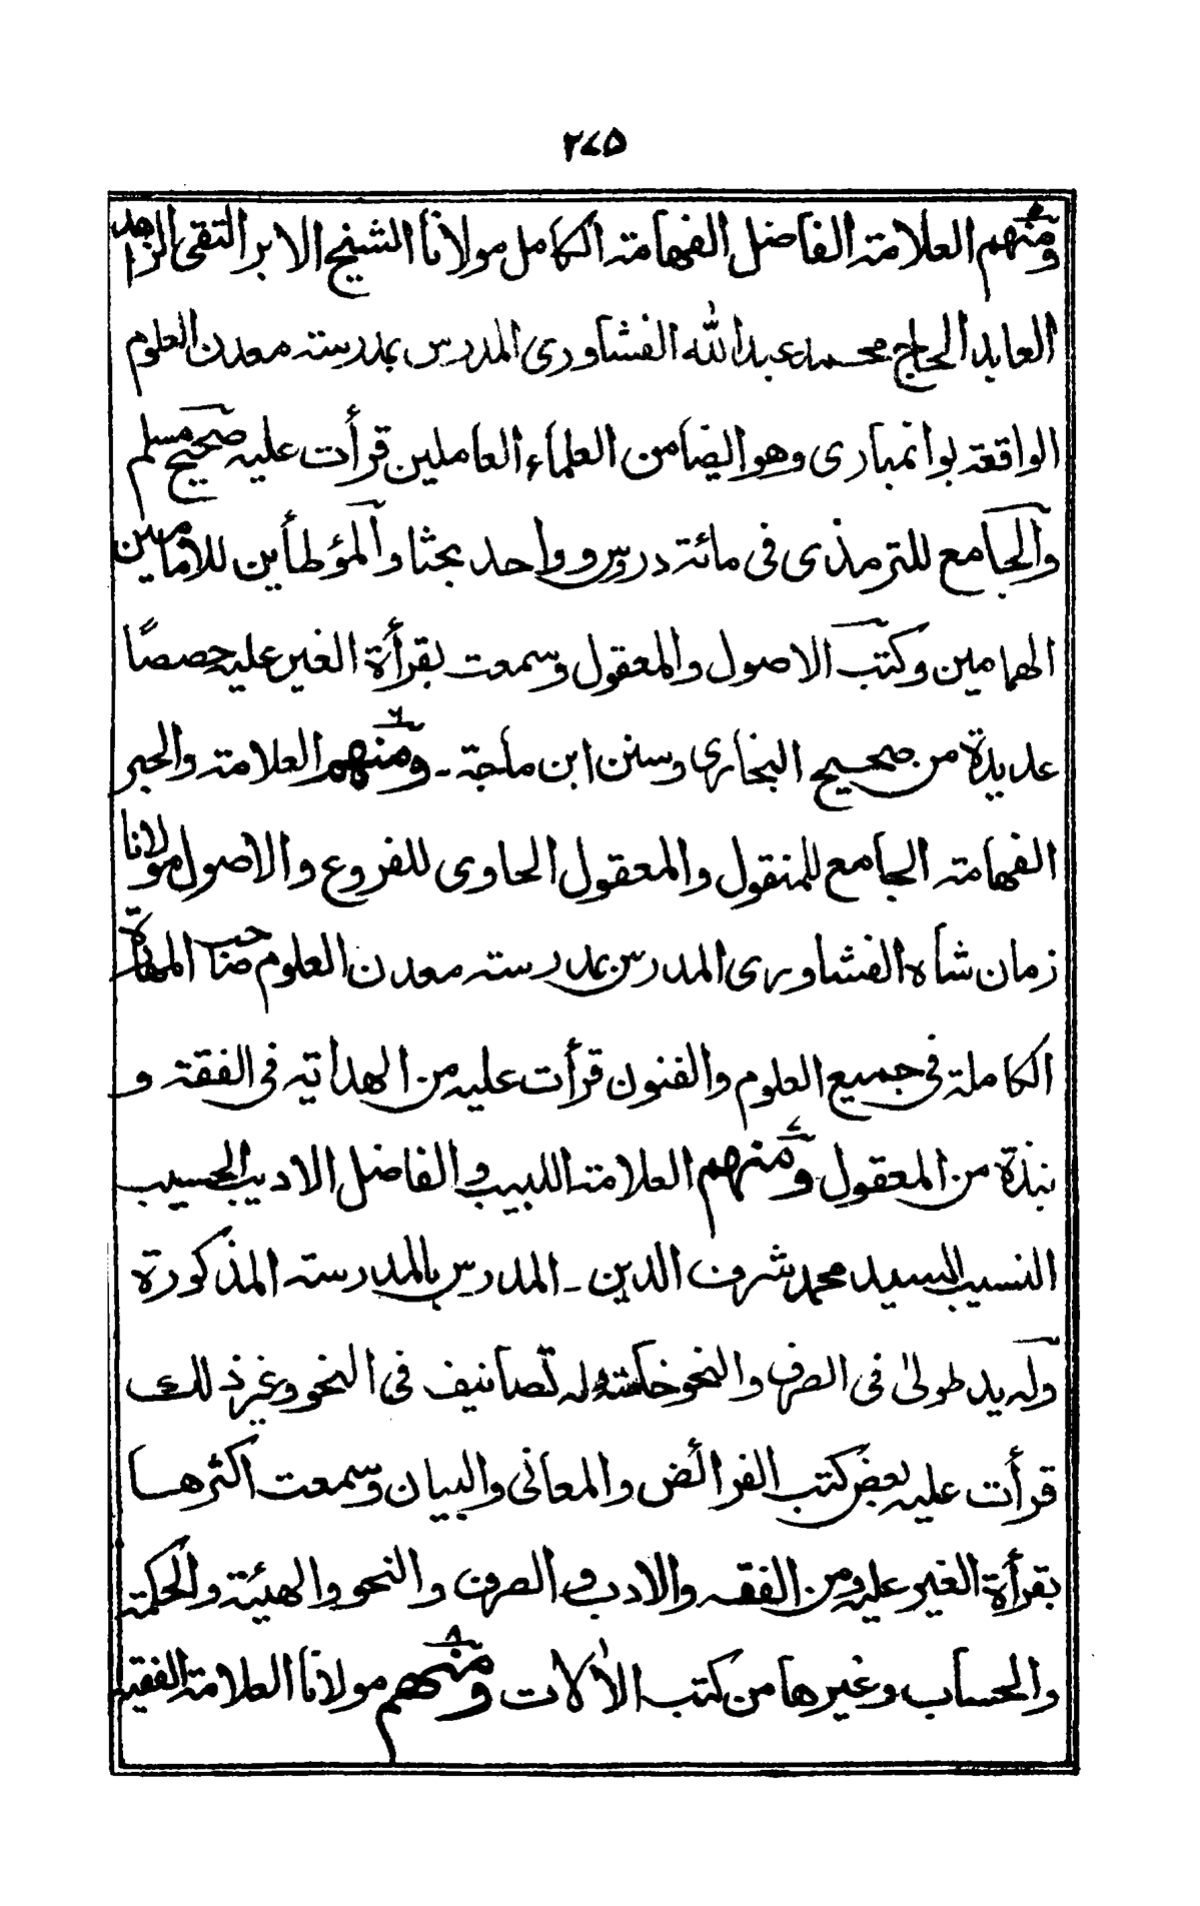 ۲۷۵
ومنهم العلامة الفاضل الفهامة الكامل مولانا الشيخ الابر التقى الزاهد
العابد الحاج محمد عبد الله الفشاورى المدرس بمدرسة معدن العلوم
الواقعة بوانمبارى وهو ايضا من العلماء العاملين قرأت عليه صحيح مسلم
والجامع للترمذى فى مائة دروس وواحد بحثا والمؤطأين للامامين
الهمامين وكتب الاصول والمعقول وسمعت بقرأة الغير عليه حصصًا
عديدة من صحيح البخارى وسنن ابن ماجة ۔ ۶ ومنهم العلامة والحبر
الفهامة الجامع للمنقول والمعقول الحاوى للفروع والاصول مولانا
زمان شاه الفشاورى المدرس بمدرسة معدن العلوم صاحب المهارة
الكاملة فى جميع العلوم والفنون قرأت عليه من الهداية فى الفقة و
نبذة من المعقول ۷ ومنهم العلامة اللبيب والفاضل الاديب الحسيب
النسيب السيد محمد شرف الدين ۔ المدرس بالمدرسة المذكورة
وله يد طولىٰ فى الصرف والنحو خاصة وله تصانيف فى النحو وغير ذلك
قرأت عليه بعض كتب الفرائض والمعانى والبيان وسمعت اكثرها
بقرأة الغير عليه ومن الفقه والادب والصرف والنحو والهيئة والحكمة
والحساب وغيرها من كتب الاٰلات ۸ ومنهم مولانا العلامة الفقيه